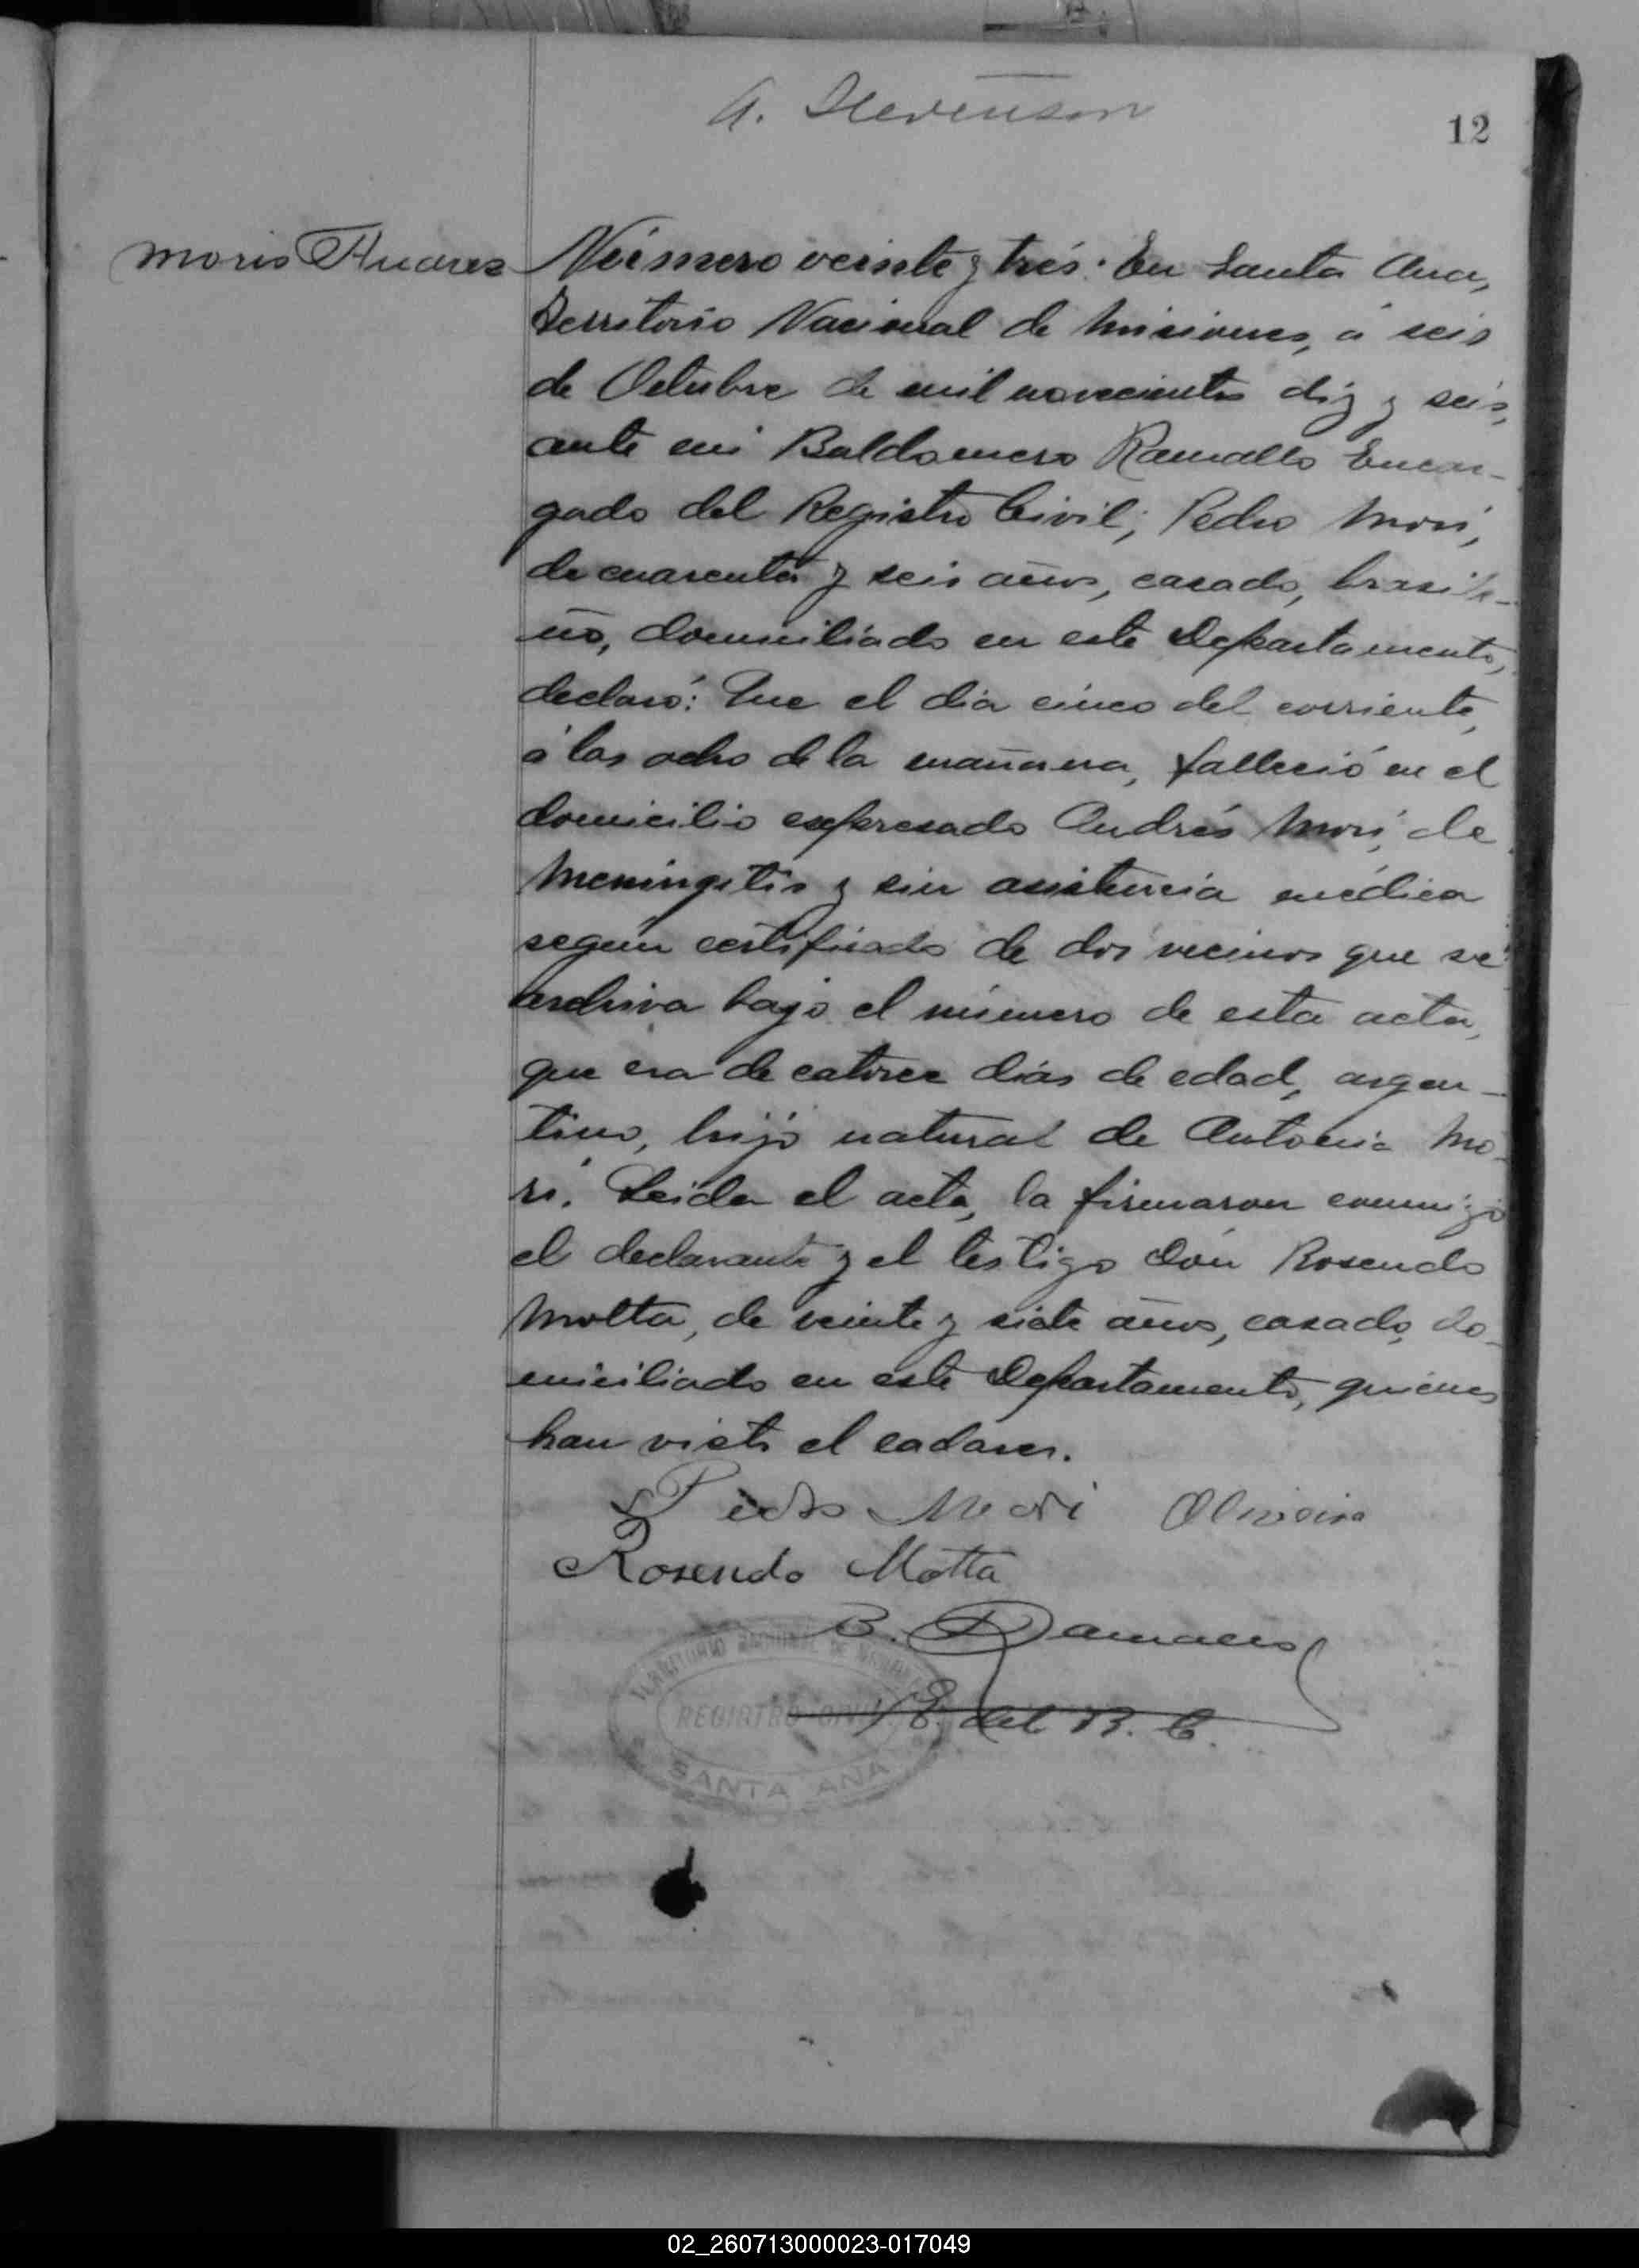 A. Stevenson
12
Moris Andres
Número veinte y trés: En Santa Ana,
Territorio Nacional de Misiones, á seis
de Octubre de mil novecientos diz y seis,
ante mi Baldomero Ramallo Encar-
gado del Registro Civil; Pedro Mori,
de cuarenta y seis años, casado, brasile-
ño, domiciliado en este Departamento,
declaró: Que el dia cinco del corriente,
á las ocho de la mañana, falleció en el
domicilio expresado Andrés Mori, de
Meningitis y sin asistencia médica
según certificado de dos vecinos que se
archiva bajo el número de esta acta,
que era de catorce dias de edad, argen-
tino, hijo natural de Antonia Mo-
ri. Leida el acta, la firmaron conmigo
el declarante y el testigo Don Rosendo
Motta, de veinte y siete años, casado, do-
miciliado en este Departamento, quienes
han visto el cadaver.
Pedro Mori Oliveira
Rosendo Motta
B. Ramallo
E. del R. C.
TERRITORIO NACIONAL DE MISIONES
REGISTRO CIVIL
SANTA ANA
02_260713000023-017049